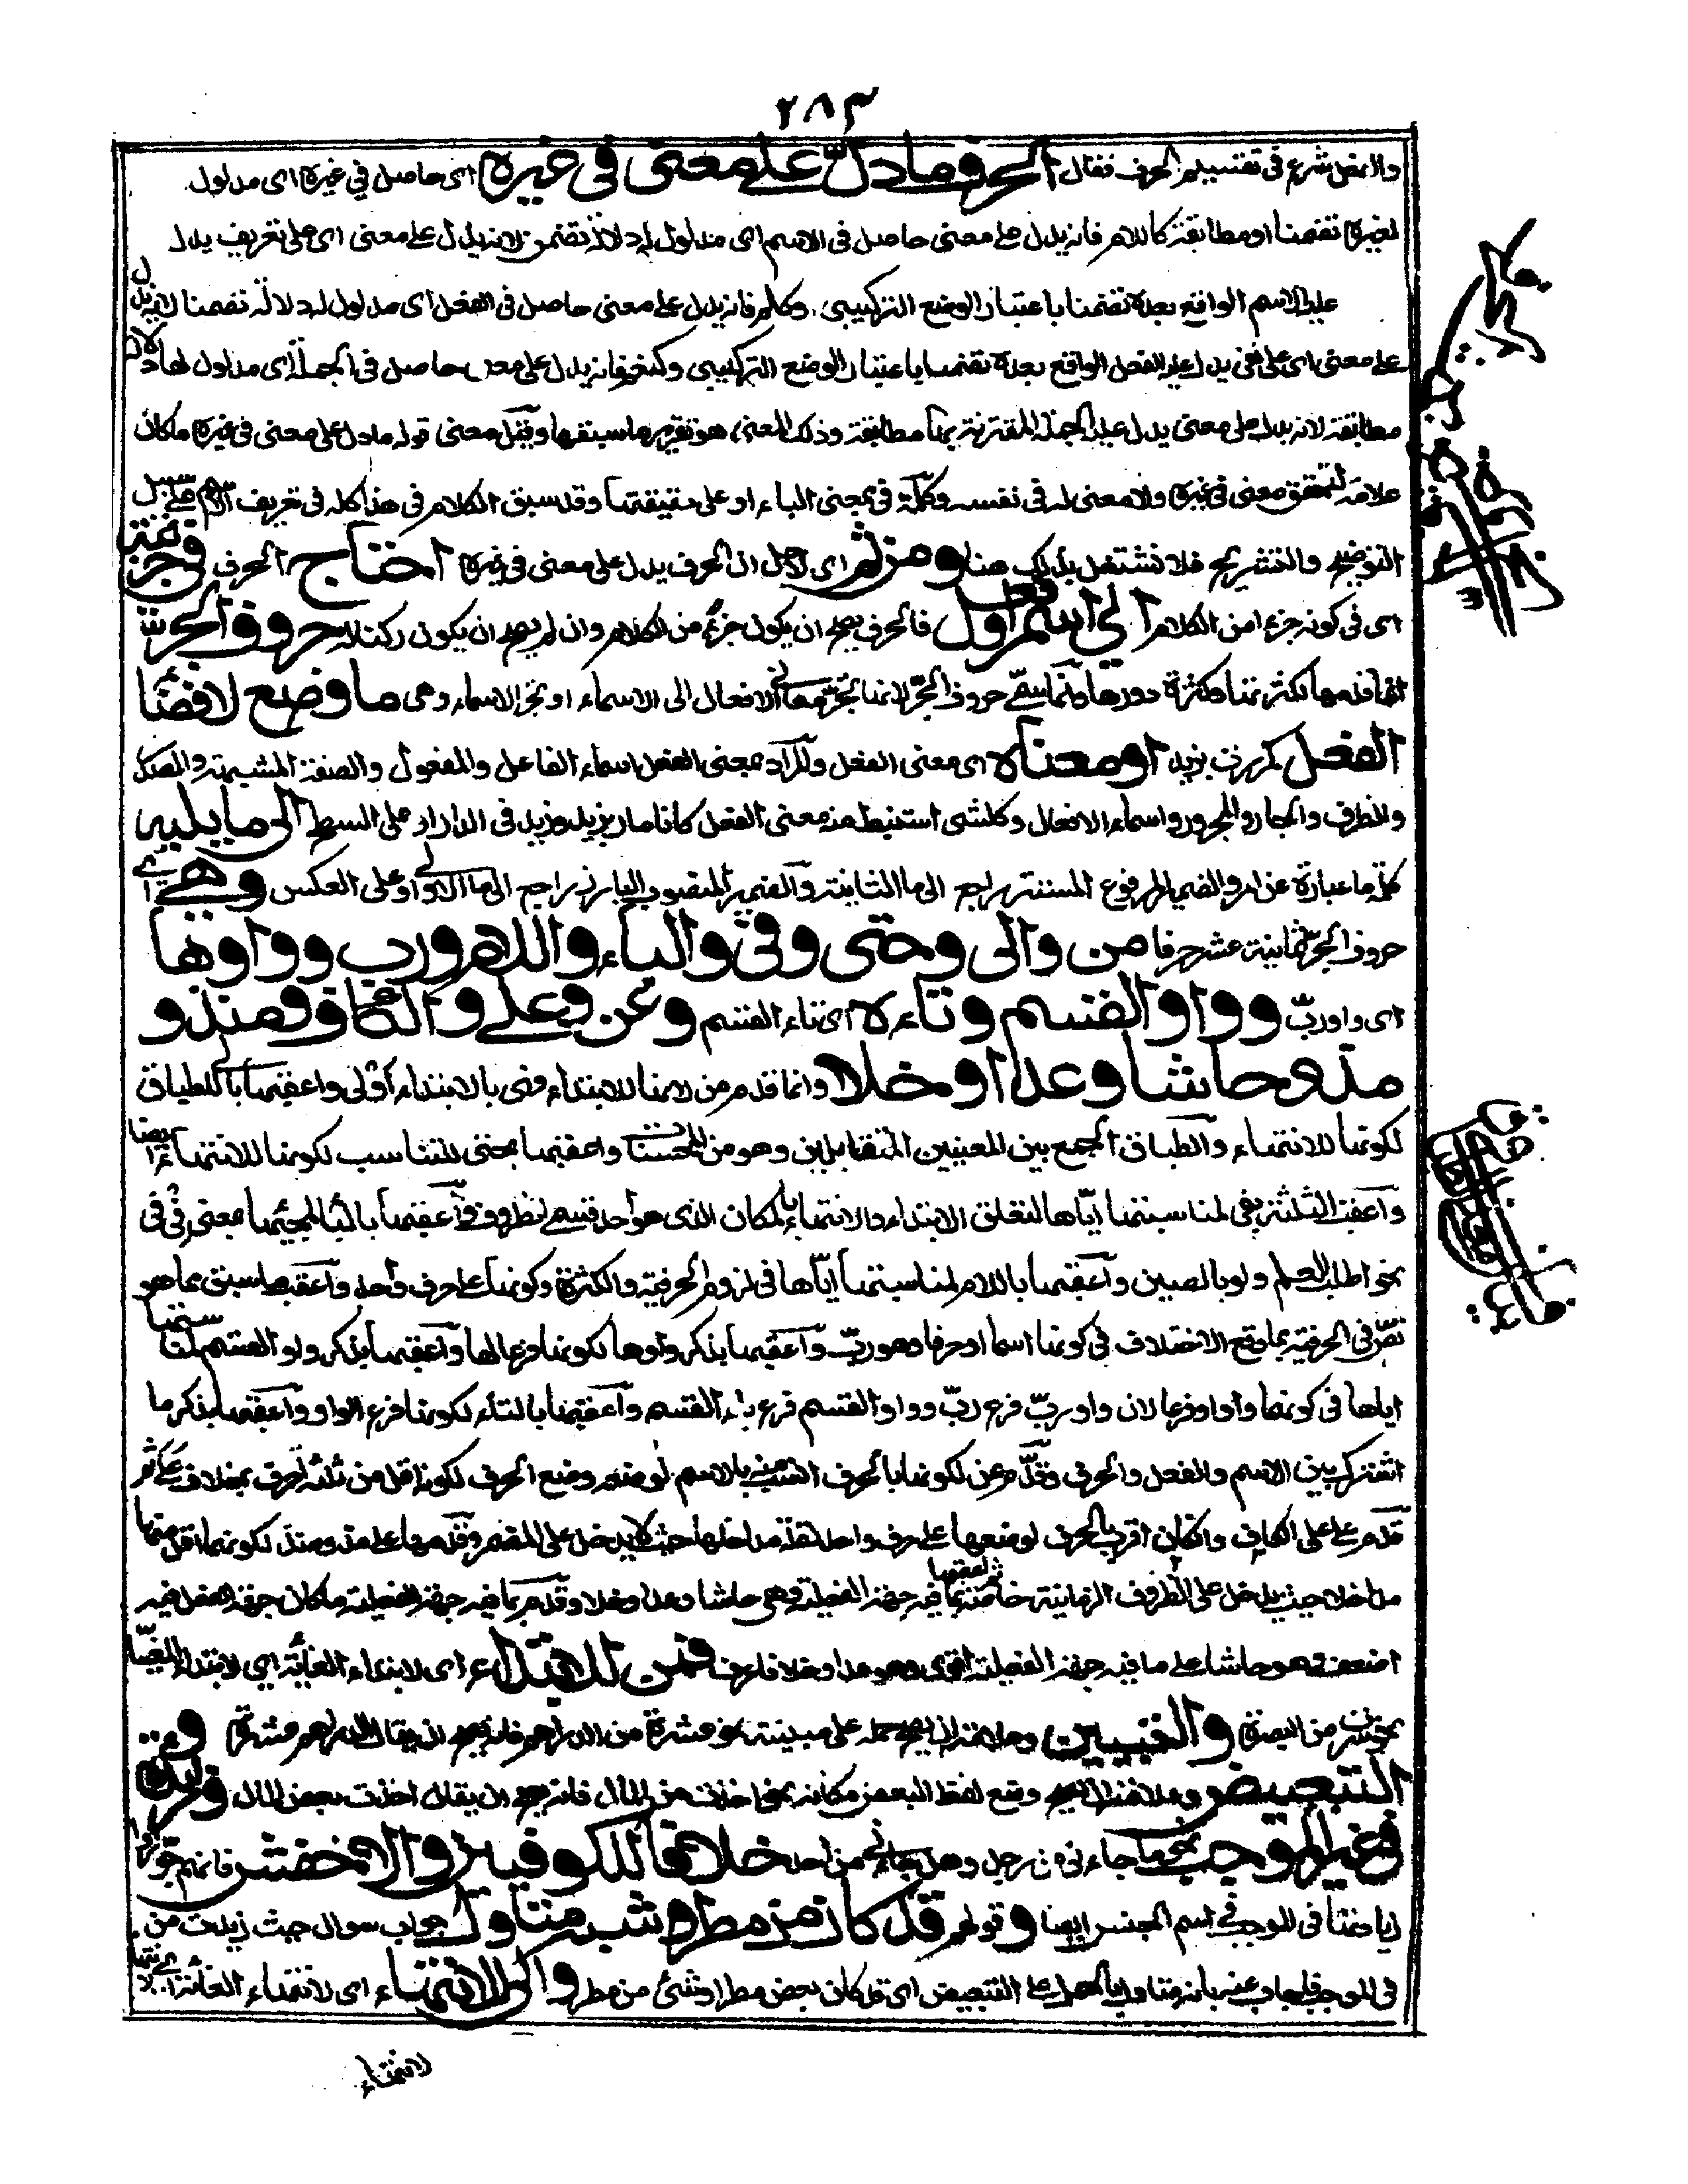 ٢٨٣
والفعل شرع في تقسيم الحرف فقال الحرف ما دلّ على معنى في غيره اى حاصل في غيره اى مدلول
لغيره تضمنا او مطابقة كاللام فانه يدل على معنى حاصل في الاسم اى مدلول له دلالة تضمن لانه يدل على معنى اى على تعريف يدل
عليه الاسم الواقع بعده تضمنا باعتبار الوضع التركيبى وكلم فانه يدل على معنى حاصل في الفعل اى مدلول له دلالة تضمنا لانه يدل
على معنى اى على نفى يدل عليه الفعل الواقع بعده تضمنا باعتبار الوضع التركيبى وكنعم فانه يدل على معنى حاصل في الجملة اى مدلول لها دلالة
مطابقة لانه يدل على معنى يدل عليه الجملة المقترنة بها مطابقة وذلك المعنى هو تقرير ما سبقها وقيل معنى قوله ما دل على معنى في غيره ما كان
علامة لتحقق معنى في غيره ولا معنى له في نفسه وكلمة في بمعنى الباء او على حقيقتها وقد سبق الكلام في هذا كله في تعريف الاسم على سبيل
التوضيح والتشريح فلا نشتغل بذلك هنا ومن ثم اى لاجل ان الحرف يدل على معنى في غيره احتاج الحرف في جزئيته
اى في كونه جزء من الكلام الى اسم او فعل فالحرف يصح ان يكون جزء من الكلام وان لم يصح ان يكون ركنا له حروف الجرّ
انما قدمها لكثرتها وكثرة دورها وانما سمّى حروف الجرّ لانها تجرّ معانى الافعال الى الاسماء او تجر الاسماء وهى ما وضع لافضاء
الفعل كمررت بزيد او معناه اى معنى الفعل والمراد بمعنى الفعل اسماء الفاعل والمفعول والصفة المشبهة والمصدر
والظرف والجار والمجرور واسماء الافعال وكل شى استنبط منه معنى الفعل كانا مار بزيد وزيد في الدار او على السطح الى ما يليه
كلمة ما عبارة عن امر والضمير المرفوع المستتر راجع الى ما الثانية والضمير المنصوب البارز راجع الى ما الاولى او على العكس وهى اى
حروف الجرّ ثمانية عشر حرفا من والى وحتى وفى والباء واللام ورب وواوها
اى واو ربّ وواو القسم وتاءه اى تاء القسم وعن وعلى والكاف ومنذ و
مذ وحاشا وعدا وخلا وانما قدم من لانها للابتداء فهى بالابتداء اولى واعقبها بالى للطباق
لكونها للانتهاء والطباق الجمع بين المعنيين المتقابلين وهو من المحسنات واعقبها بحتى للتناسب لكونها للانتهاء ايضا
واعقب الثلثة بفى لمناسبتها اياها لتعلق الابتداء والانتهاء بالمكان الذى هو احد قسمى الظروف واعقبها بالباء لمجيئها بمعنى في
نحو اطلبوا العلم ولو بالصين واعقبها باللام لمناسبتها اياها في لزوم الحرفية والكثرة وكونها على حرف واحد واعقب ما سبق مما هو
نصّ في الحرفية بما وقع الاختلاف في كونها اسما او حرفا وهو ربّ واعقبها بذكر واوها لكونها فرعا لها واعقبها بذكر واو القسم لمناسبتها
اياها في كونها واوا وفرعا لان واو ربّ فرع ربّ وواو القسم فرع باء القسم واعقبها بالتاء لكونها فرع الواو واعقبها بذكر ما
اشترك بين الاسم والفعل والحرف وقدّم عن لكونها بالحرف اشبه منه بالاسم لوضعه وضع الحرف لكونه اقل من ثلثة احرف بخلاف على ثم
قدم على على الكاف وان كان اقرب بالحرف لوضعها على حرف واحد لقلة مداخلها حيث لا يدخل على المضمر وقدمها على مذ ومنذ لكونهما اقل منها
مداخلا حيث يدخل على الظروف الزمانية خاصة ثم اعقبها بما فيه جهة الفعلية وهى حاشا وعدا وخلا وقدم بما فيه جهة الفعلية ما كان جهة الفعل فيه
اضعف وهو حاشا على ما فيه جهة الفعلية اقوى وهو عدا وخلا فمن للابتداء اى لابتداء الغاية
نحو سرت من البصرة والتبيين وعلامته ان يصح حمله على مبينه نحو عشرة من الدراهم فانه يصح ان يقال الدراهم عشرة و
التبعيض وعلامته ان يصح وضع لفظ البعض مكانه نحو اخذت من المال فانه يصح ان يقال اخذت بعض المال وزائدة
في غير الموجب نحو ما جاءنى من رجل وهل جاءنى من احد خلافا للكوفيين والاخفش فانهم جوزوا
زيادتها في الموجب في اسم الجنس ايضا وقولهم قد كان من مطر وشبهه متاول جواب سوال حيث زيدت من
في الموجب فاجاب عنه بانه متاول بالحمل على التبعيض اى قد كان بعض مطر او شئ من مطر والى للانتهاء اى لانتهاء الغاية
لانتهاء